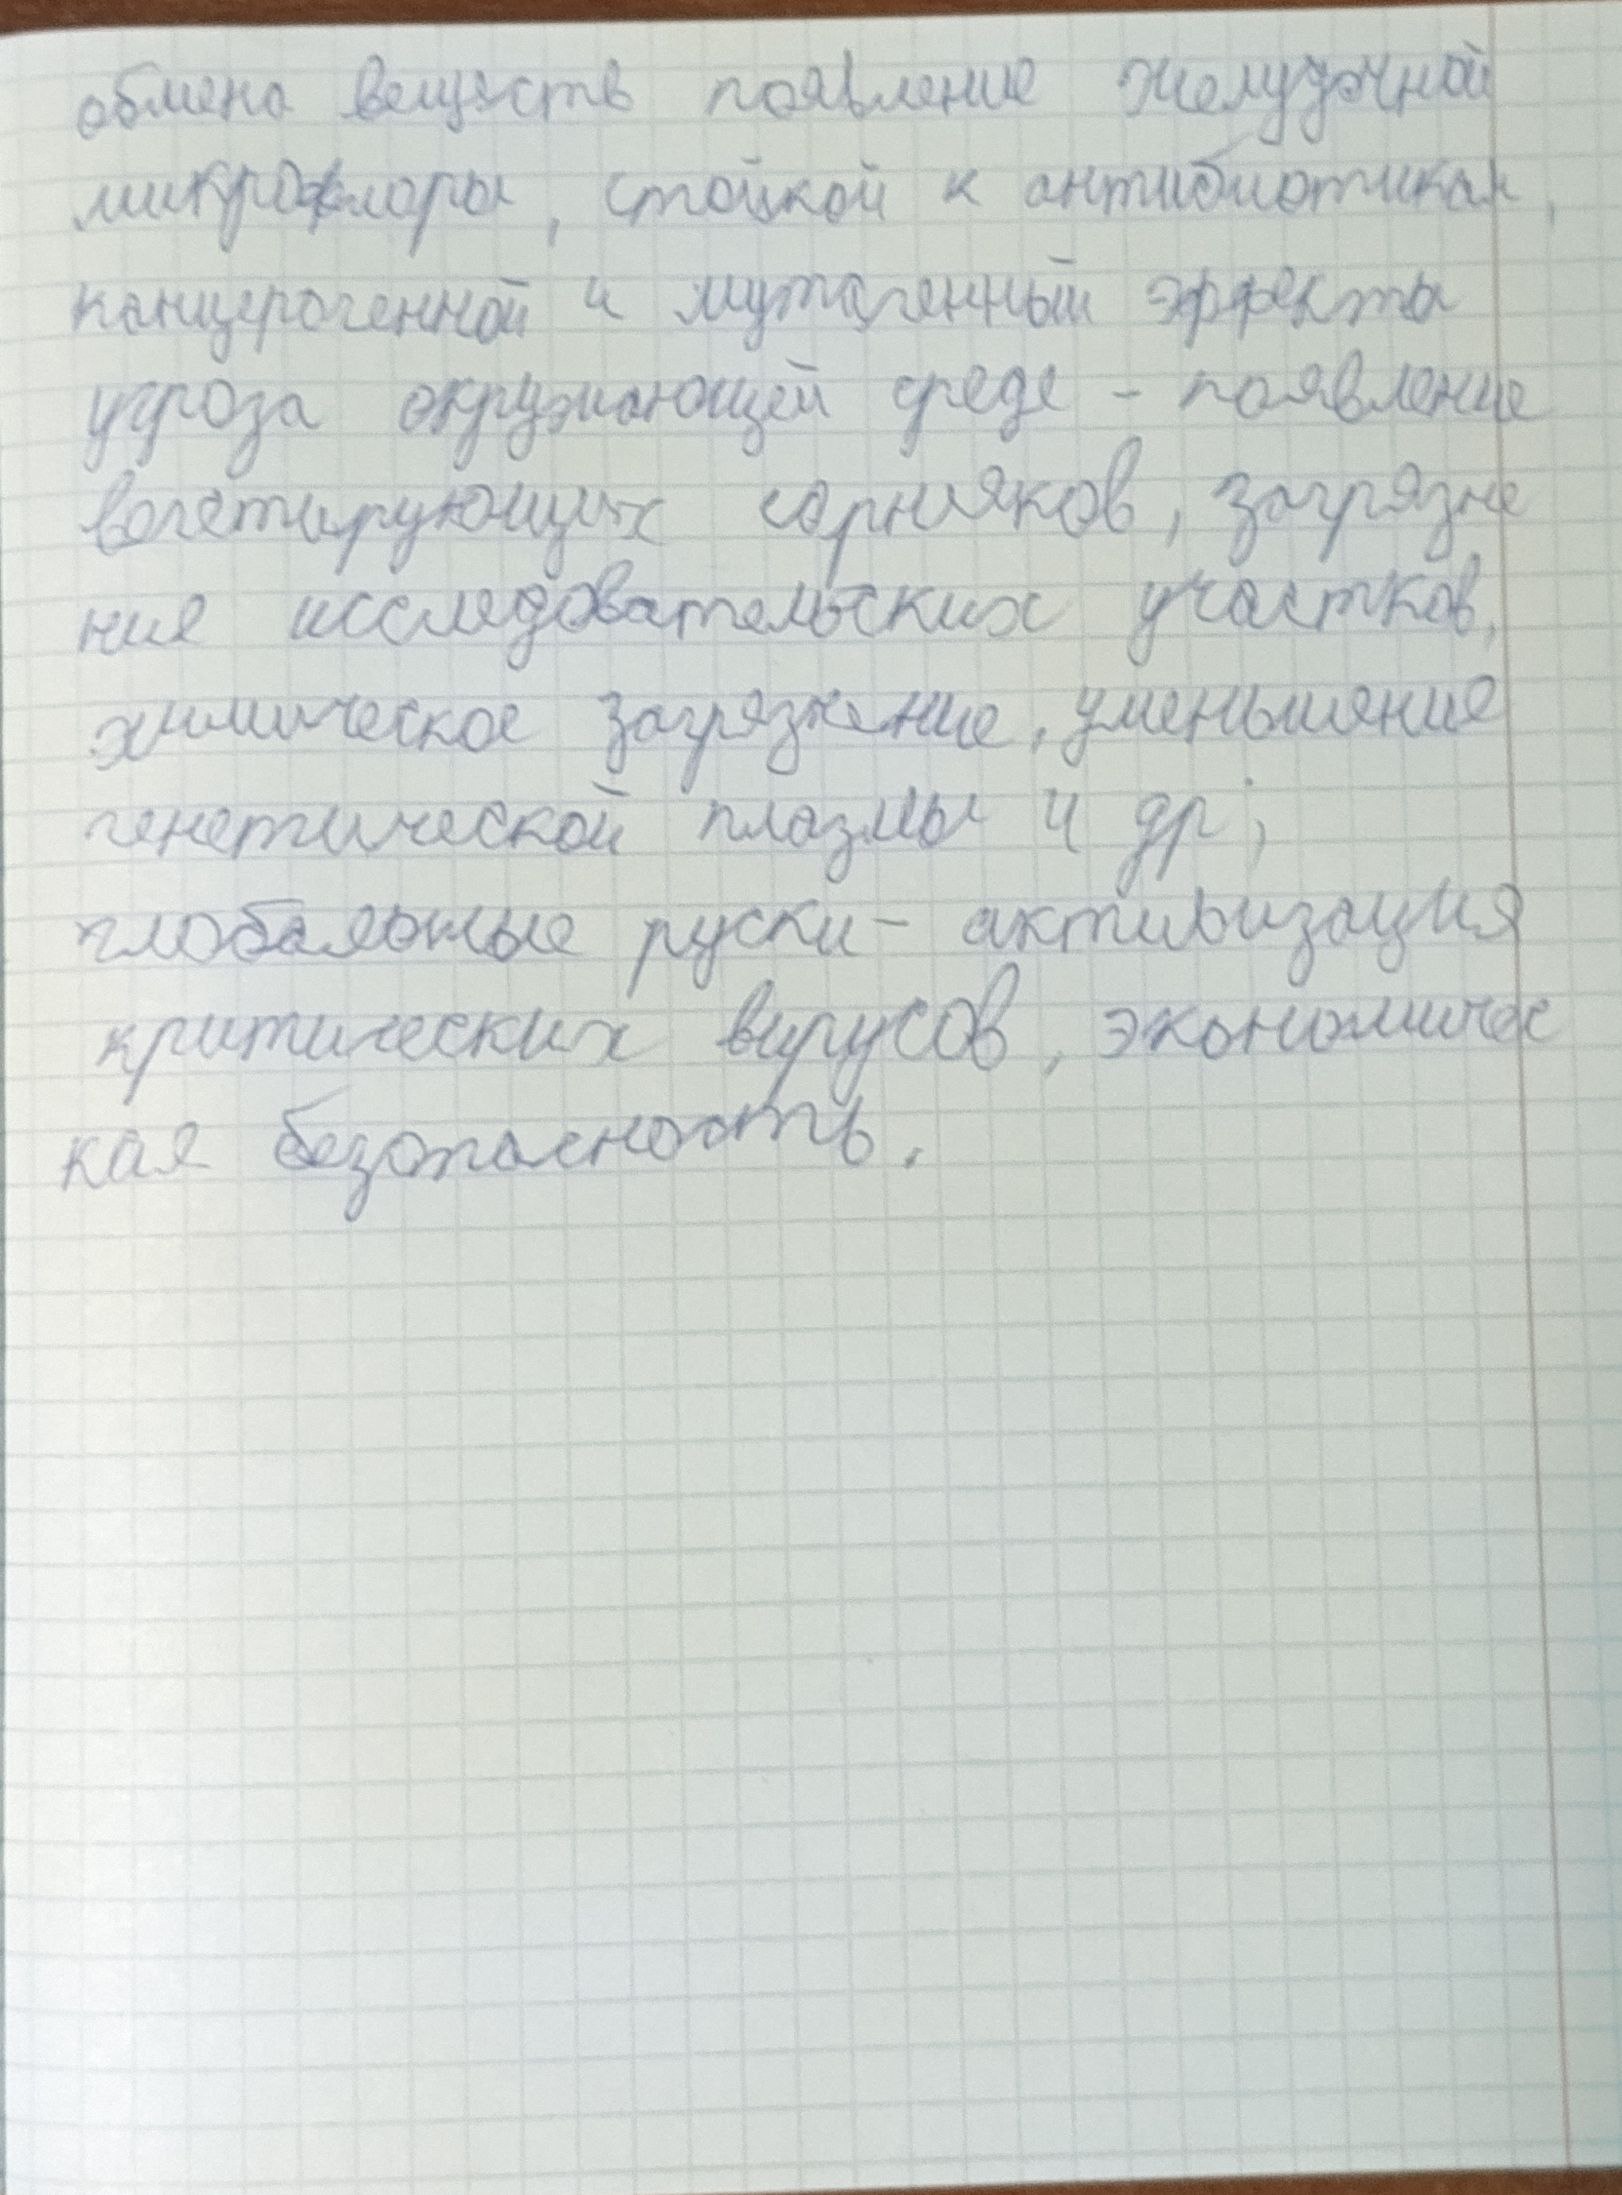 обмена веществ появление желудочной
микрофлоры, стойкой к антибиотикам,
канцерогенной и мутагенный эффекты
угроза окружающей среде - появление
вегетирующих сорняков, загрязне
ние исследовательских участков,
химическое загрязнение, уменьшение
генетической плазмы и др;
глобальные руски - активизация
критических вирусов, экономичес
кая безопасность.